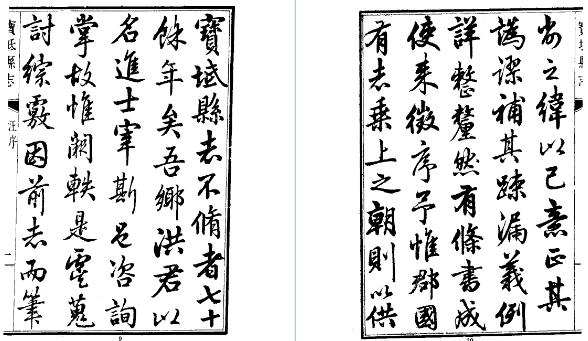 寶坻縣志不脩者七十
餘年矣吾鄉洪君以
名進士宰斯邑咨詢
掌故惟闕軼是虞蒐
討綜覈因前志而筆
寶坻縣志
汪序
一
9
削之緯以己意正其
譌謬補其踈漏義例
詳整釐然有條書成
使来徵序予惟郡國
有志乘上之朝則以供
寶坻縣志
10